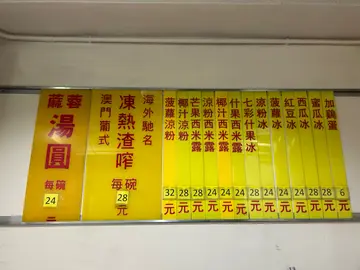 蔴蓉
湯圓
每碗
24
元
澳門葡式
凍熱渣咋
海外馳名
每碗
28
元
菠蘿涼粉
32
元
椰汁涼粉
28
元
芒果西米露
28
元
涼粉西米露
28
元
椰汁西米露
24
元
什果西米露
24
元
七彩什果冰
28
元
涼粉冰
24
元
菠蘿冰
24
元
紅豆冰
24
元
西瓜冰
28
元
蜜瓜冰
28
元
加鷄蛋
6
元